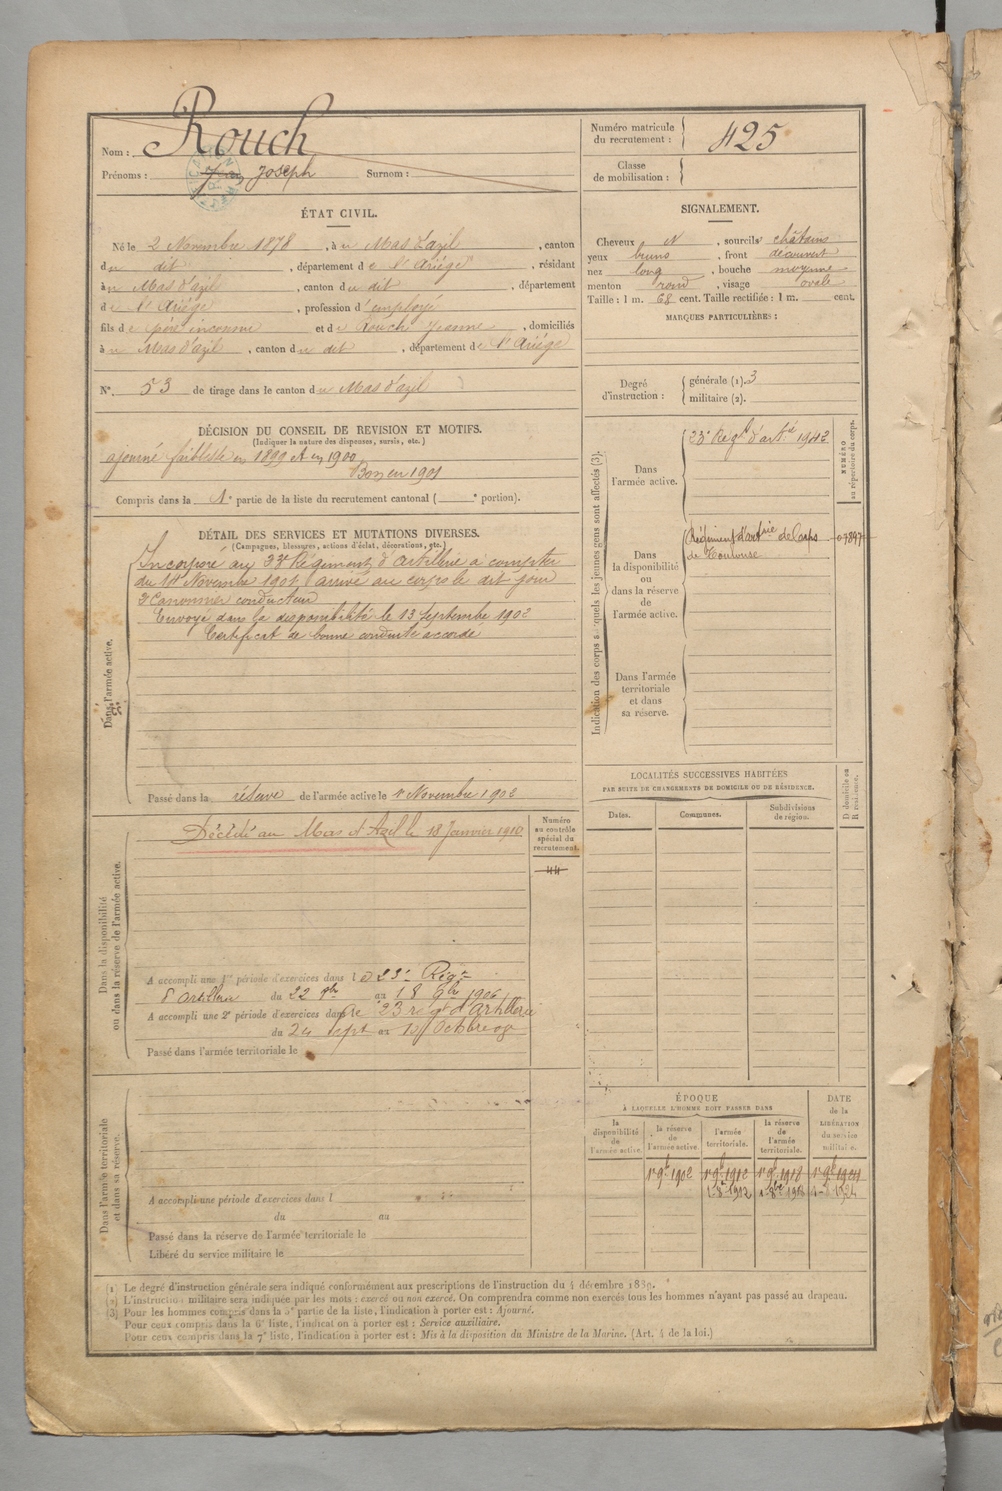 Nom : Rouch
Prénoms : Jean Joseph Surnom :
Numéro matricule du recrutement : 425
Classe de mobilisation :
ÉTAT CIVIL.
Né le 2 Novembre 1878, à u Mas d'azil, canton
du dit, département de l'Ariège, résidant
à u Mas d'azil, canton du dit, département
de l'Ariège, profession d'employé
fils de père inconnu et de Rouch Jeanne, domiciliés
à u Mas d'azil, canton du dit, département de l'Ariège
N° 53 de tirage dans le canton du Mas d'azil
DÉCISION DU CONSEIL DE REVISION ET MOTIFS.
(Indiquer la nature des dispenses, sursis, etc.)
ajourné faiblesse en 1899 et en 1900
Bon en 1901
Compris dans la 1e partie de la liste du recrutement cantonal ( e portion).
SIGNALEMENT.
Cheveux N, sourcils châtains
yeux bruns, front découvert
nez long, bouche moyenne
menton rond, visage ovale
Taille : 1 m. 68 cent. Taille rectifiée : 1 m. cent.
MARQUES PARTICULIÈRES :
Degré d'instruction :
générale (1). 3
militaire (2).
DÉTAIL DES SERVICES ET MUTATIONS DIVERSES.
(Campagnes, blessures, actions d'éclat, décorations, etc.)
Dans l'armée active.
Incorporé au 23e Régiment d'artillerie à compter
du 14 Novembre 1901, arrivé au corps le dit jour
2e Canonnier conducteur
Envoyé dans la disponibilité le 13 Septembre 1902
Certificat de bonne conduite accordé
Passé dans la réserve de l'armée active le 1er Novembre 1902
Indication des corps auxquels les jeunes gens sont affectés (3).
NUMÉRO au répertoire du corps.
Dans l'armée active.
23e Régt d'artie
Dans la disponibilité ou dans la réserve de l'armée active.
Régiment d'artrie de Corps
de Toulouse
Dans l'armée territoriale et dans sa réserve.
LOCALITÉS SUCCESSIVES HABITÉES
PAR SUITE DE CHANGEMENTS DE DOMICILE OU DE RÉSIDENCE.
Dates. Communes. Subdivisions de région. D domicile ou R résidence.
Dans la disponibilité ou dans la réserve de l'armée active.
Numéro au contrôle spécial du recrutement.
44
Décédé au Mas d'Azil le 18 Janvier 1910
A accompli une 1re période d'exercices dans le 23e Régt
d'artillerie du 22 8bre au 18 9bre 1906
A accompli une 2e période d'exercices dans le 23 régt d'Artillerie
du 24 sept au 10 Octobre 09
Passé dans l'armée territoriale le
Dans l'armée territoriale et dans sa réserve.
A accompli une période d'exercices dans l
du au
Passé dans la réserve de l'armée territoriale le
Libéré du service militaire le
ÉPOQUE
À LAQUELLE L'HOMME DOIT PASSER DANS
DATE de la LIBÉRATION du service militaire.
la disponibilité de l'armée active. la réserve de l'armée active. l'armée territoriale. la réserve de l'armée territoriale.
1er 9bre 1902 1er 9bre 1912 1er 9bre 1918
(1) Le degré d'instruction générale sera indiqué conformément aux prescriptions de l'instruction du 4 décembre 1889.
(2) L'instruction militaire sera indiquée par les mots : exercé ou non exercé. On comprendra comme non exercés tous les hommes n'ayant pas passé au drapeau.
(3) Pour les hommes compris dans la 5e partie de la liste, l'indication à porter est : Ajourné.
Pour ceux compris dans la 6e liste, l'indication à porter est : Service auxiliaire.
Pour ceux compris dans la 7e liste, l'indication à porter est : Mis à la disposition du Ministre de la Marine. (Art. 4 de la loi.)